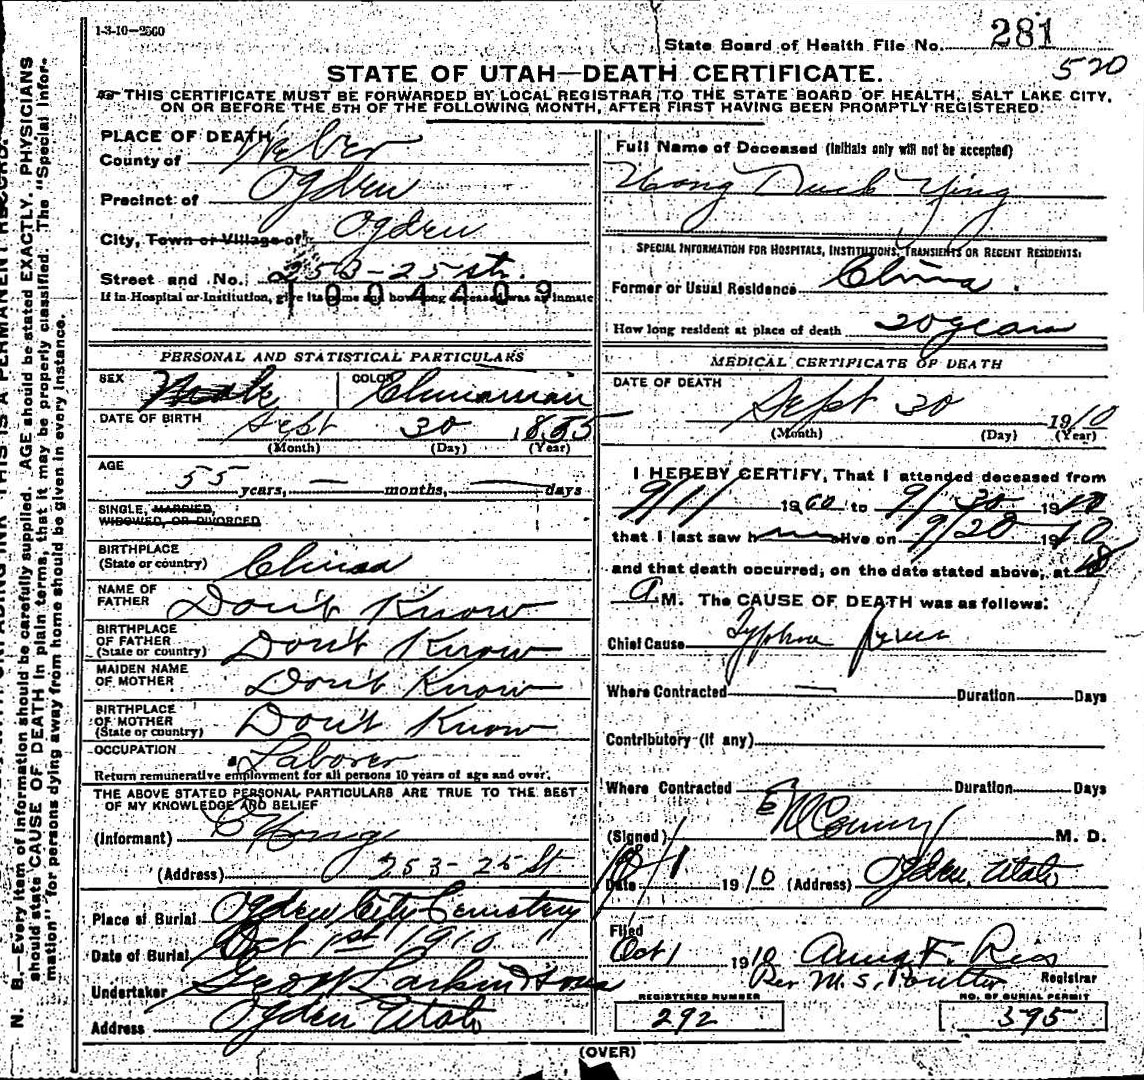 1-3-10—2500
State Board of Health File No. 281
520
STATE OF UTAH—DEATH CERTIFICATE.
THIS CERTIFICATE MUST BE FORWARDED BY LOCAL REGISTRAR TO THE STATE BOARD OF HEALTH, SALT LAKE CITY,
ON OR BEFORE THE 5TH OF THE FOLLOWING MONTH, AFTER FIRST HAVING BEEN PROMPTLY REGISTERED.
PLACE OF DEATH
County of Weber
Precinct of Ogden
City, Town or Village of Ogden
Street and No. 253-25 st.
If in Hospital or Institution, give its name and how long deceased was an inmate
1004409
PERSONAL AND STATISTICAL PARTICULARS
SEX Male COLOR Chinaman
DATE OF BIRTH Sept 30 1855
(Month) (Day) (Year)
AGE
55 years, — months, — days
SINGLE, MARRIED,
WIDOWED, OR DIVORCED
BIRTHPLACE
(State or country) China
NAME OF
FATHER Don't Know
BIRTHPLACE
OF FATHER
(State or country) Don't Know
MAIDEN NAME
OF MOTHER Don't Know
BIRTHPLACE
OF MOTHER
(State or country) Don't Know
OCCUPATION Laborer
Return remunerative employment for all persons 10 years of age and over.
THE ABOVE STATED PERSONAL PARTICULARS ARE TRUE TO THE BEST
OF MY KNOWLEDGE AND BELIEF
(Informant)
(Address) 253-25 St
Place of Burial Ogden City Cemetery
Date of Burial Oct 1st 1910
Undertaker Geo W Larkin & Sons
Address Ogden Utah
Full Name of Deceased (initials only will not be accepted)
Wong Duck Ying
SPECIAL INFORMATION FOR HOSPITALS, INSTITUTIONS, TRANSIENTS OR RECENT RESIDENTS:
Former or Usual Residence China
How long resident at place of death 20 years
MEDICAL CERTIFICATE OF DEATH
DATE OF DEATH
Sept 30 1910
(Month) (Day) (Year)
I HEREBY CERTIFY, That I attended deceased from
9/11 19 to 9/30 1910
that I last saw h alive on 9/20 1910
and that death occurred, on the date stated above, at
A M. The CAUSE OF DEATH was as follows:
Chief Cause Typhoid fever
Where Contracted — Duration Days
Contributory (if any)
Where Contracted Duration Days
(Signed) M. D.
10/1
Date 1910 (Address) Ogden, Utah
Filed
Oct 1 1910
Per M. S. Poulter Registrar
REGISTERED NUMBER
292
NO. OF BURIAL PERMIT
395
(OVER)
N. B.—Every item of information should be carefully supplied. AGE should be stated EXACTLY. PHYSICIANS
should state CAUSE OF DEATH in plain terms, that it may be properly classified. The "Special Infor-
mation" for persons dying away from home should be given in every instance.
THIS IS A PERMANENT RECORD.